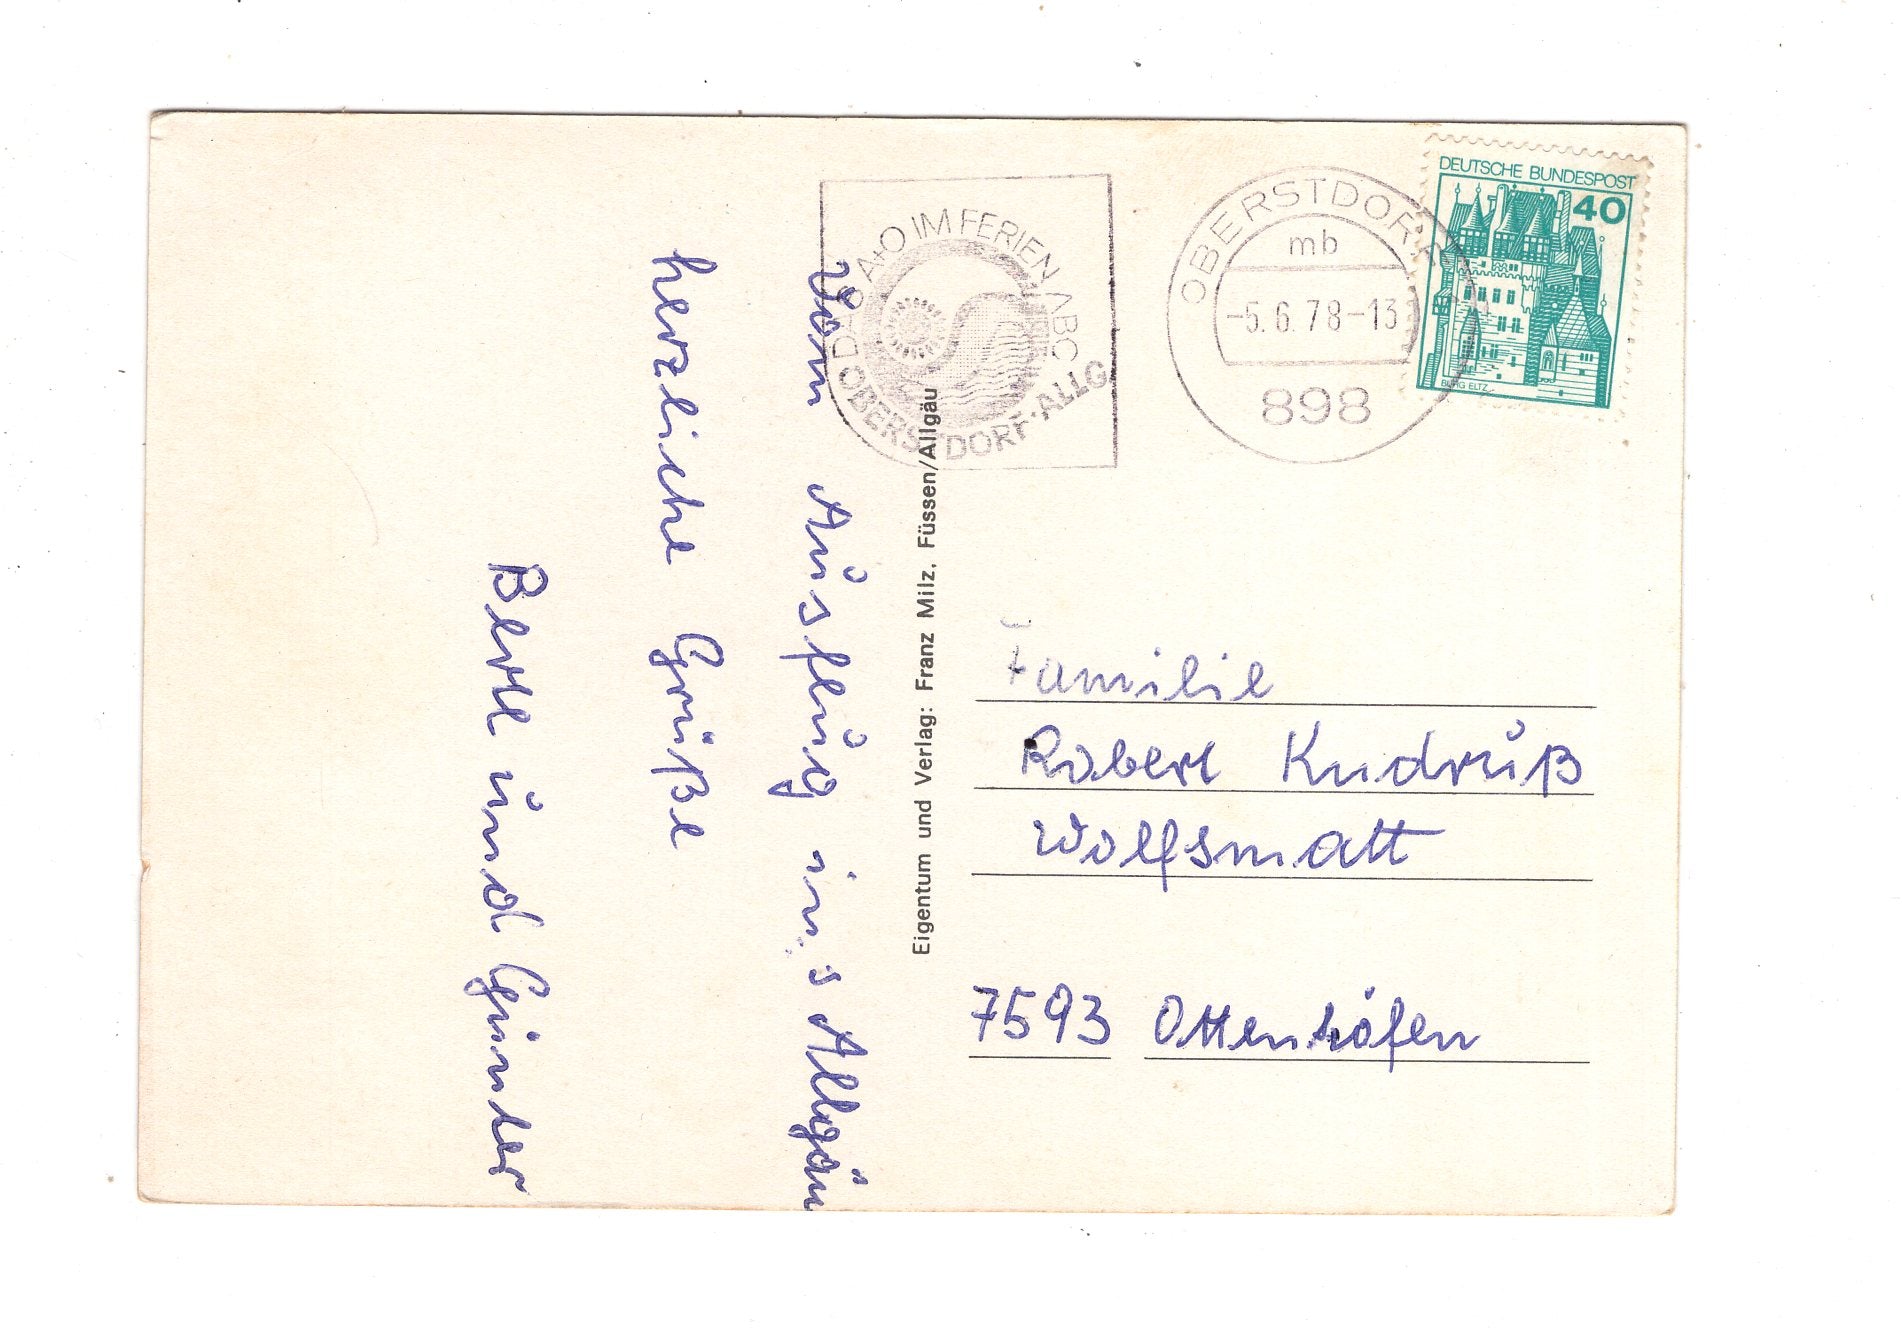 Vom Ausflug ins Allgäu
herzliche Grüße
Bertl und Günter
Eigentum und Verlag: Franz Milz, Füssen/Allgäu
DAS A+O IM FERIEN ABC
OBERSTDORF·ALLG.
OBERSTDORF
mb
-5.6.78-13
898
DEUTSCHE BUNDESPOST
40
BURG ELTZ
Familie
Robert Kudruß
Wolfsmatt
7593 Ottenhöfen